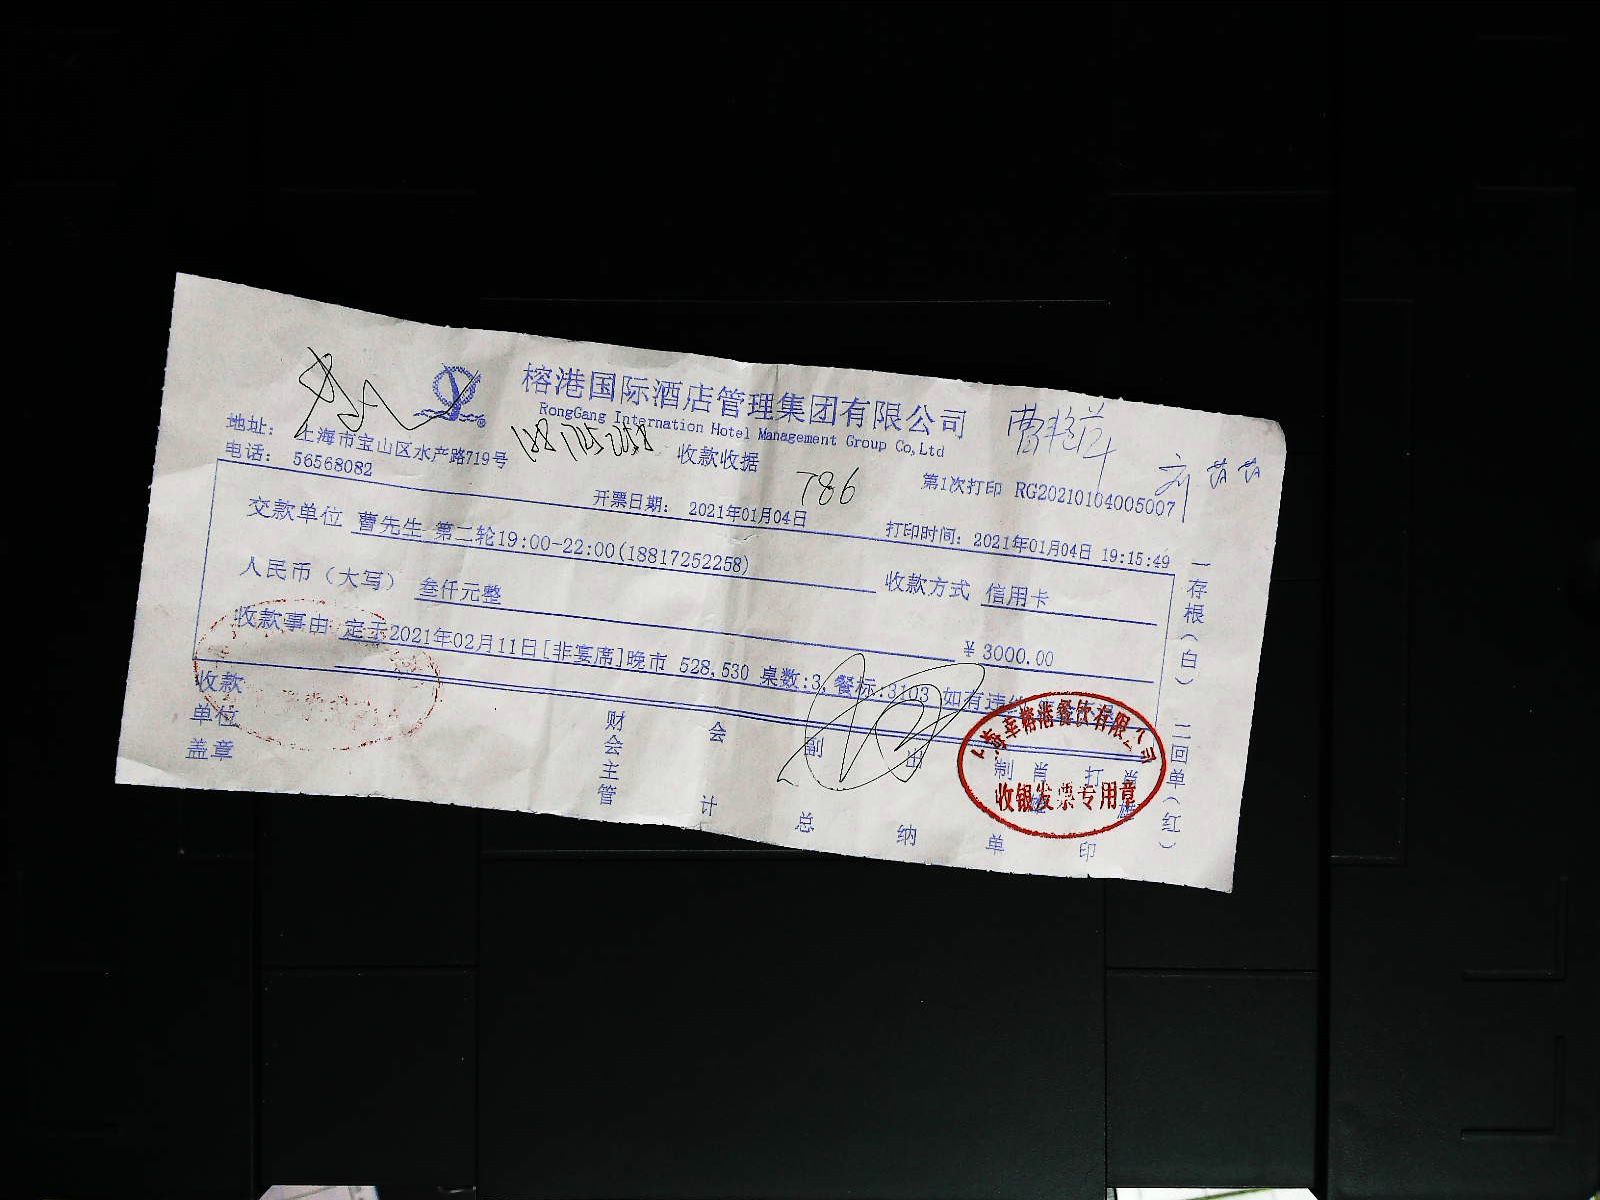 榕港国际酒店管理集团有限公司
RongGang Internation Hotel Management Group Co,Ltd
地址： 上海市宝山区水产路719号
收款收据
电话： 56568082
786
第1次打印 RG20210104005007
开票日期： 2021年01月04日
打印时间：2021年01月04日 19:15:49
交款单位 曹先生 第二轮19:00-22:00(18817252258)
收款方式 信用卡
人民币（大写） 叁仟元整
￥3000.00
收款事由 定于2021年02月11日[非宴席]晚市 528,530 桌数:3,餐标:3103 如有违约
收款单位盖章
财会主管
会计
副总
出纳
制单
肖
打印
肖
收银发票专用章
一存根(白)
二回单(红)